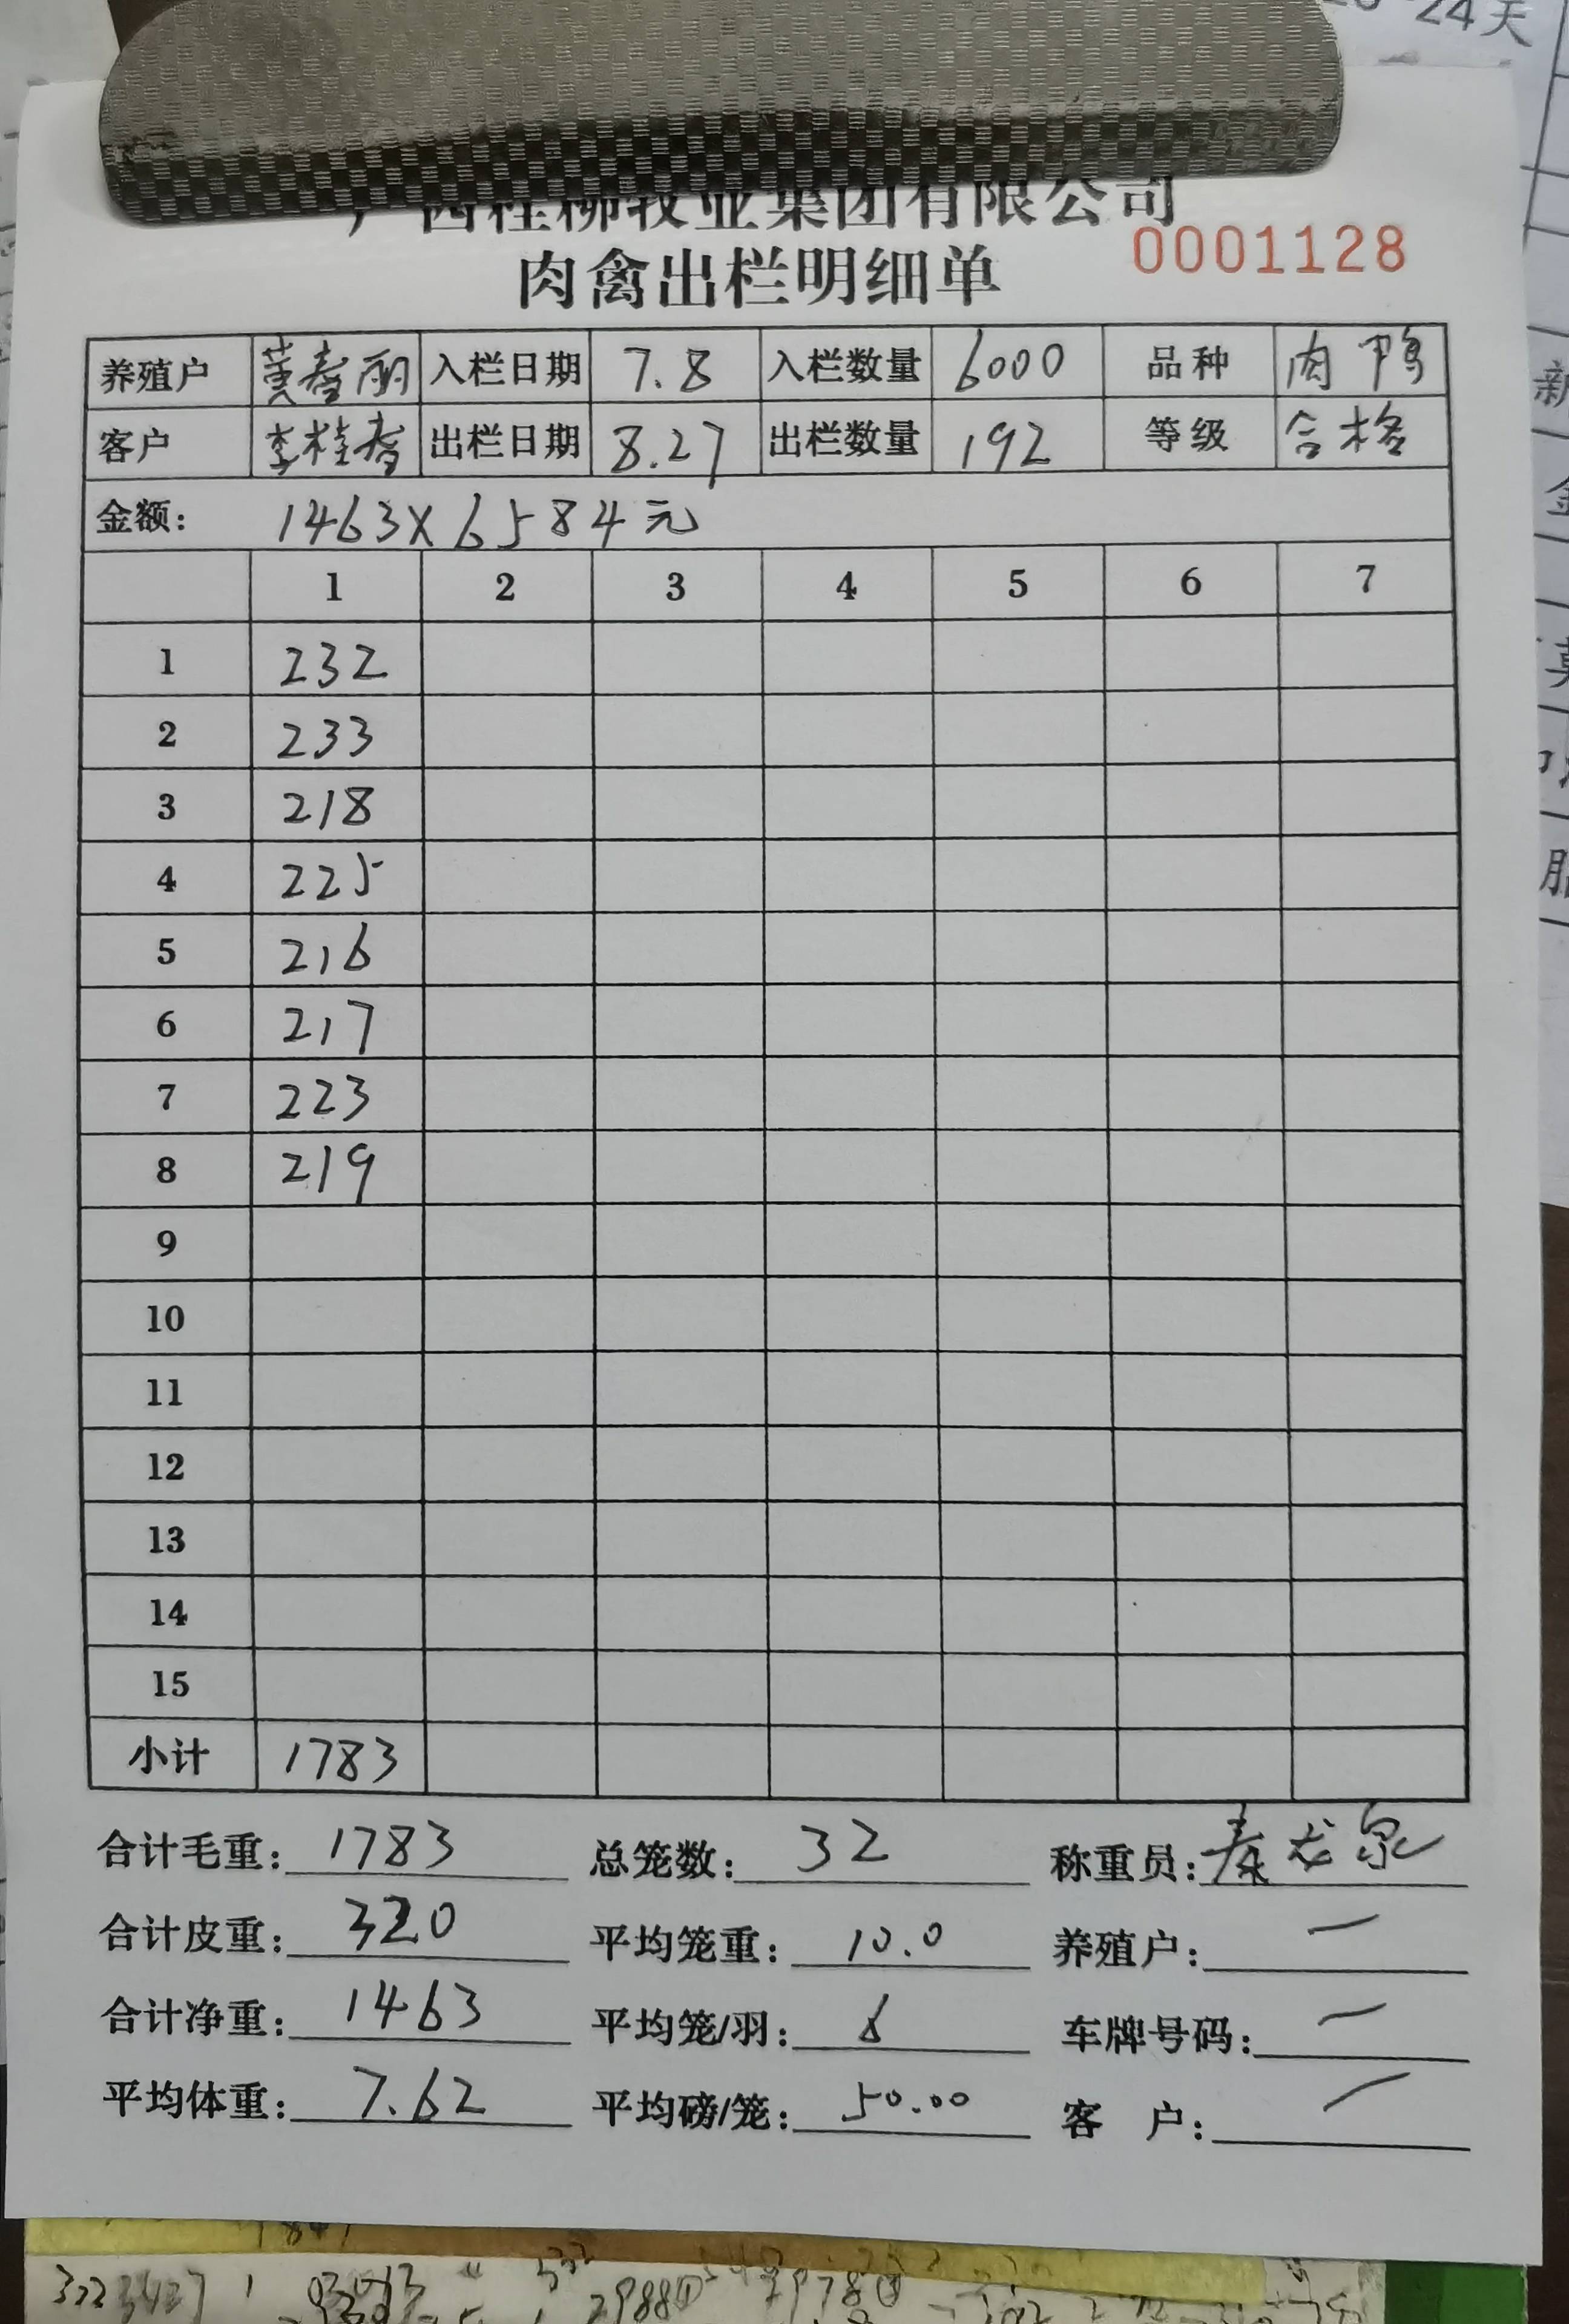 广西桂柳牧业集团有限公司
0001128
肉禽出栏明细单
养殖户 黄春丽 入栏日期 7.8 入栏数量 6000 品种 肉鸭
客户 李桂香 出栏日期 8.27 出栏数量 192 等级 合格
金额: 1463X6584元
1 2 3 4 5 6 7
1 232
2 233
3 218
4 225
5 216
6 217
7 223
8 219
9
10
11
12
13
14
15
小计 1783
合计毛重: 1783 总笼数: 32 称重员: 秦龙泉
合计皮重: 320 平均笼重: 10.0 养殖户: 一
合计净重: 1463 平均笼/羽: 6 车牌号码: 一
平均体重: 7.62 平均磅/笼: 50.00 客户: 一
24天